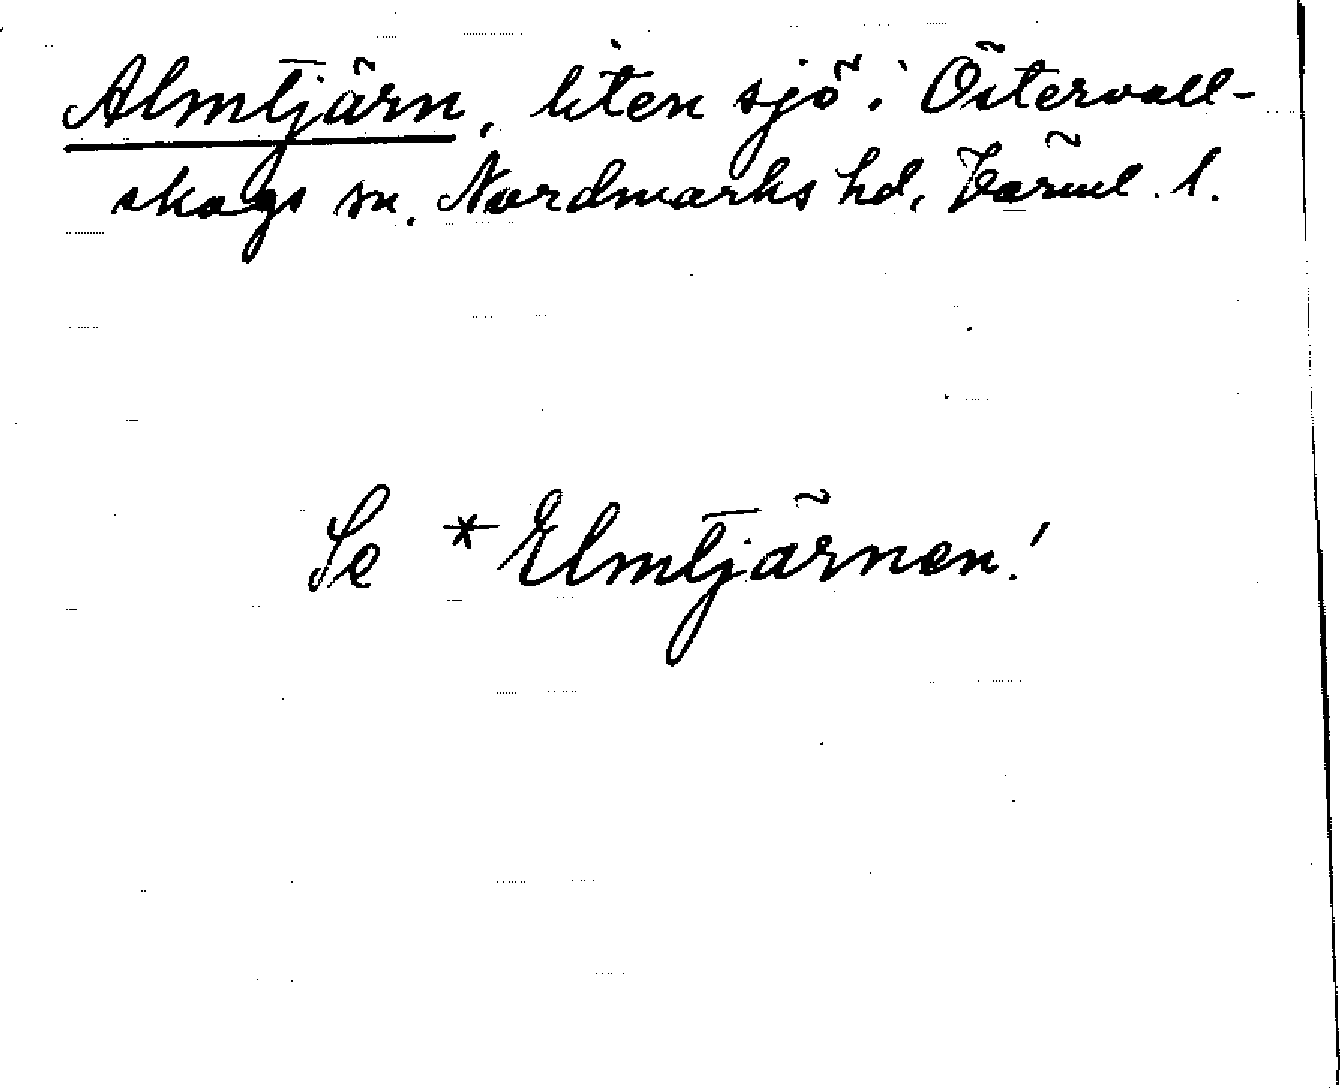 Almtjärn, liten sjö i Östervall-
skogs sn. Nordmarks hd, Värml. l.
Se *Elmtjärnen!